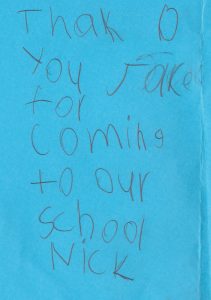 Thak
You
for
Coming
to our
school
NICK